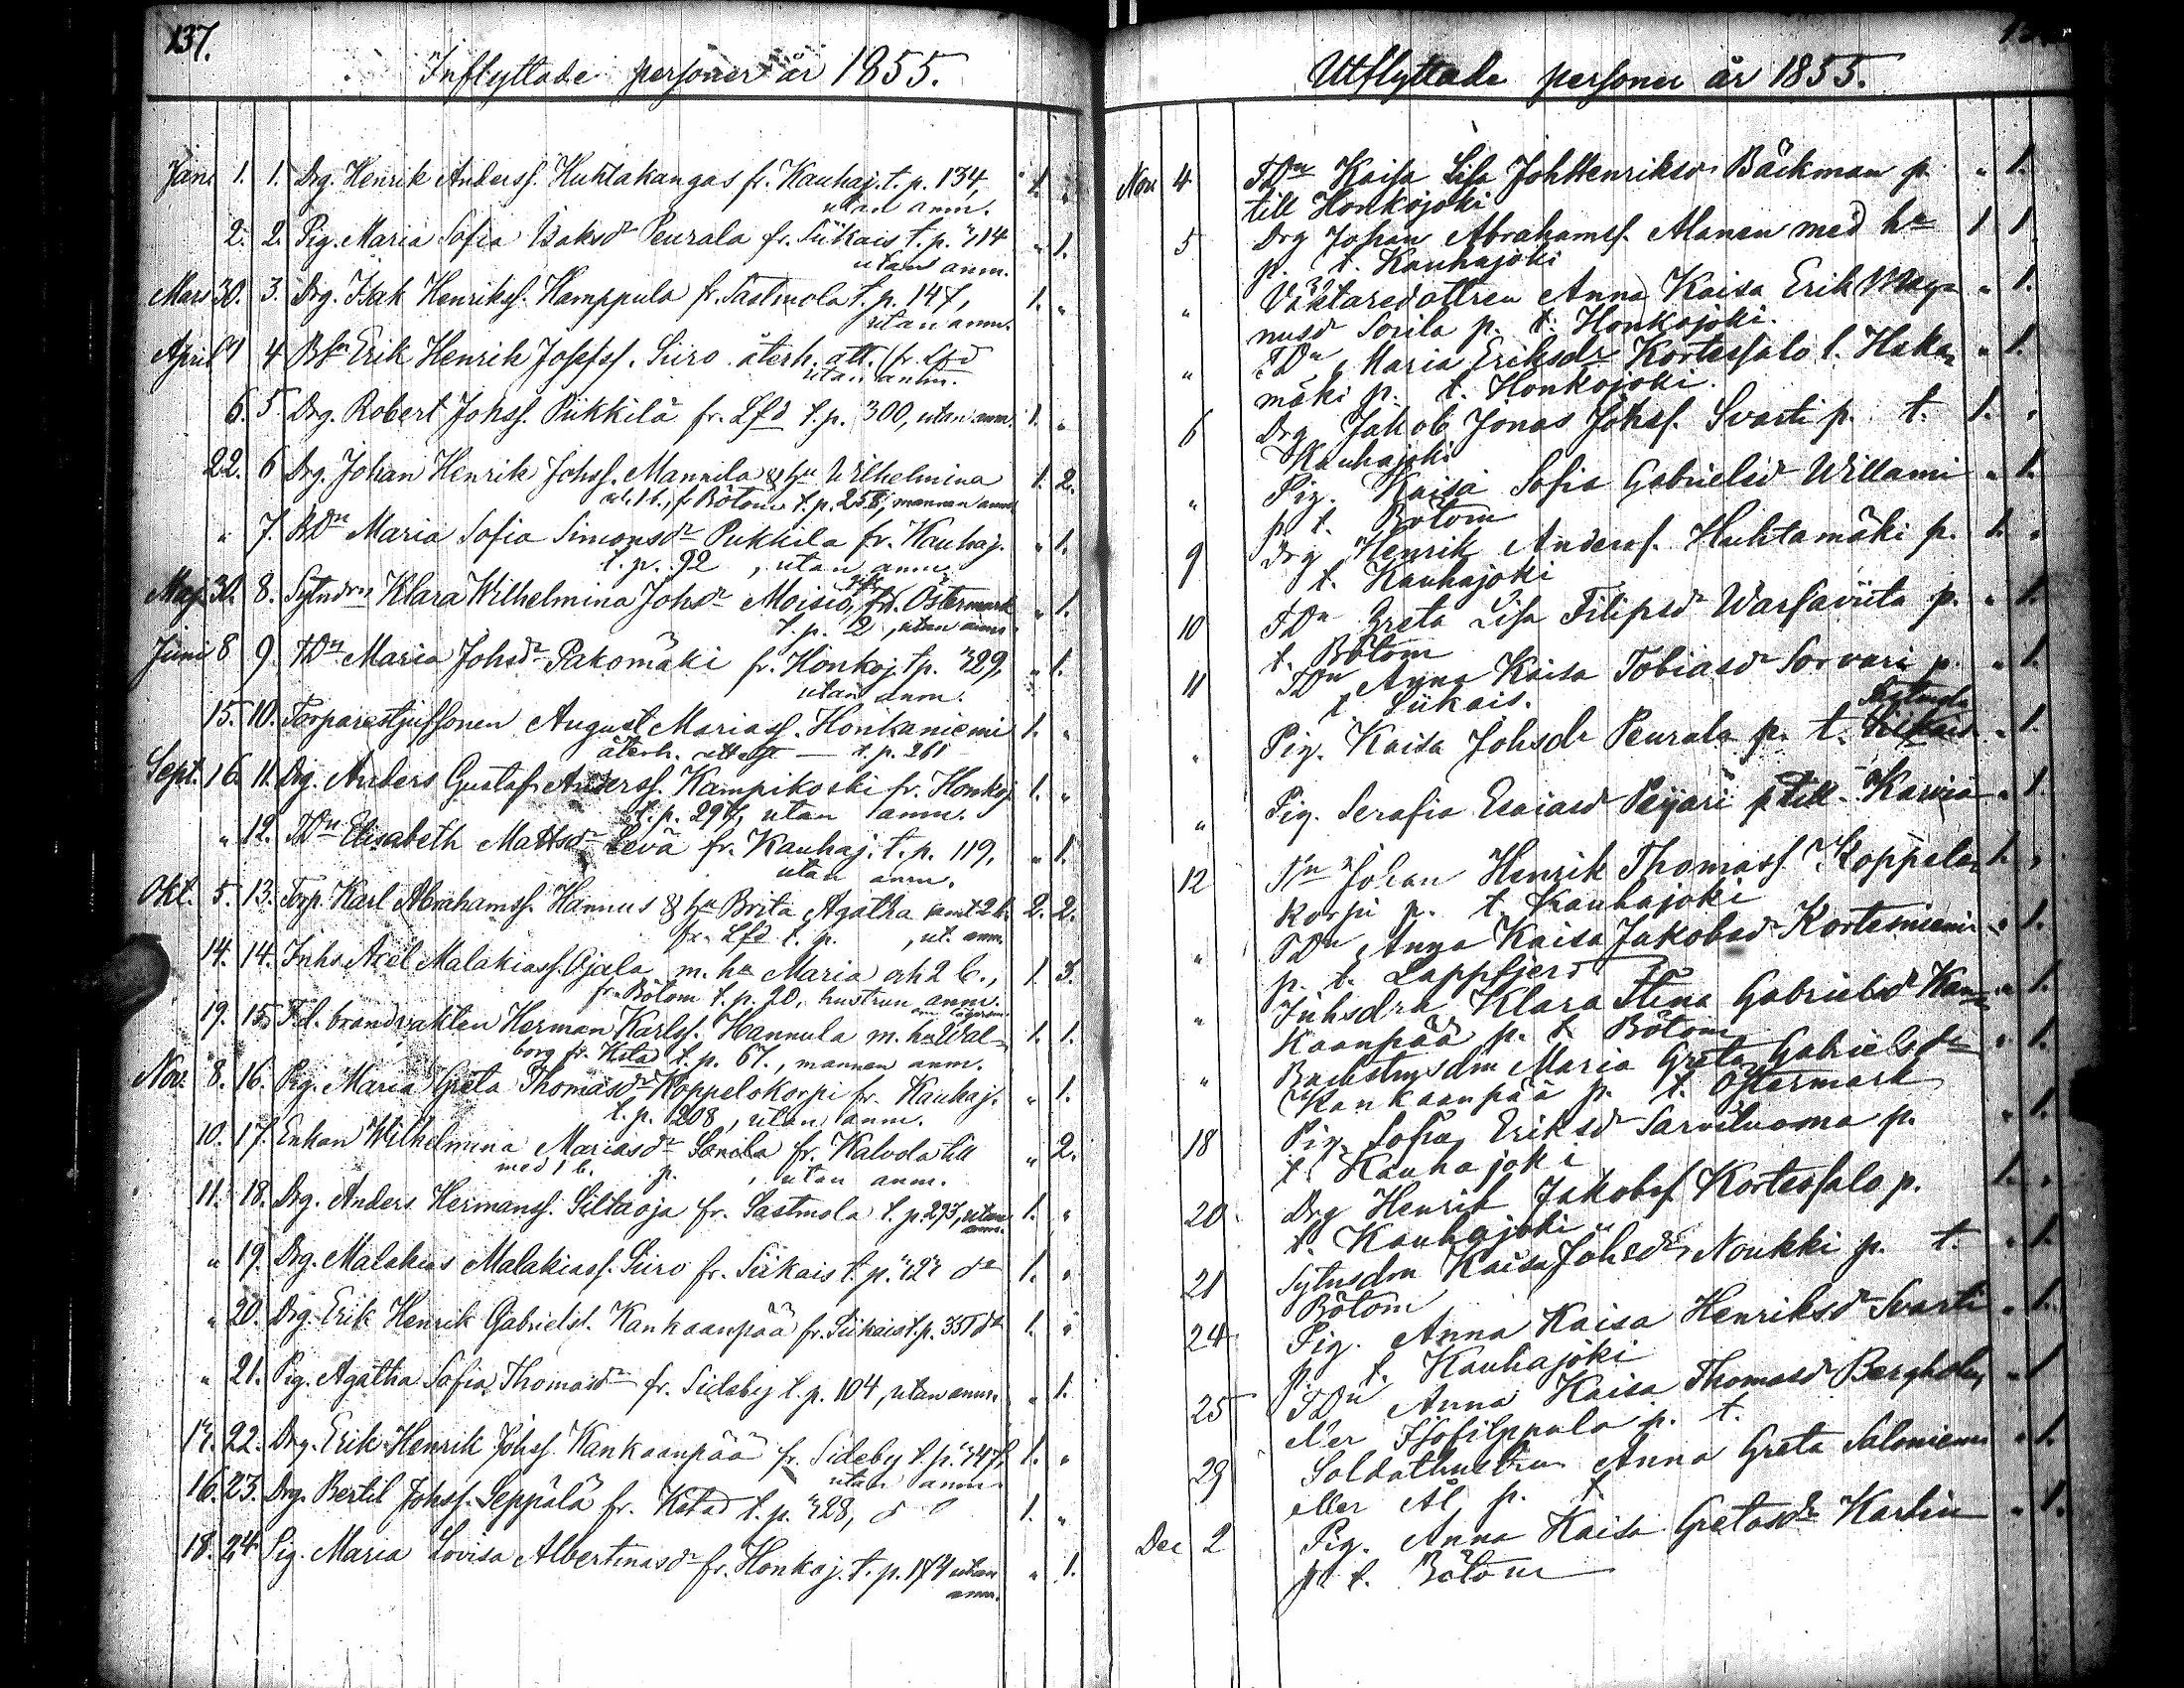 137.
Inflyttade personer år 1855.
Jan. 1. 1. Drg. Henrik Anderss. Huhtakangas fr. Kauhaj. t. p. 134, 1. „
utan anm.
2. 2. Pig. Maria Sofia Isaksdr Peurala fr. Siikais t. p. 314 „ 1.
utan anm.
Mars 30. 3. Drg. Isak Henrikss. Kamppula fr. Sastmola t. p. 147, 1. „
utan anm.
April 1 4 Erik Henrik Josefss. Siiro återh. att. fr. Lfd
utan anm.
6. 5. Drg. Robert Johss. Pukkilä fr. Lfd t. p. 300, utan anm. 1. „
22. 6 Drg. Johan Henrik Johss. Mannila & hu Wilhelmina 1. 2.
och 1 b., fr Bötom t. p. 258, mannen anm.
„ 7. BDn Maria Sofia Simonsdr Pukkila fr. Kauhaj. „ 1.
t. p. 92, utan anm.
Maj 30. 8. Sytndrn Klara Wilhelmina Johsdr Moisio, fr. Östermark „ 1.
t. p. 2, utan anm.
Juni 8 9. TDn Maria Johsdr Pakomäki fr. Honkoj. t p. 329, „ 1.
utan anm.
15. 10. Torparestjufsonen August Mariass. Honkaniemi 1. „
återh. att. t. p. 261
Sept. 16. 11. Drg. Anders Gustaf Anderss. Kampikoski fr. Honkoj. 1. „
t. p. 297, utan anm.
„ 12. TDn Elisabeth Mattsdr Levä fr. Kauhaj. t. p. 119, „ 1.
utan anm.
Okt. 5. 13. Torp. Karl Abrahamss. Hannus & hu Brita Agatha samt 2 b. 2. 2.
fr. Lfd t. p. , ut. anm.
14. 14. Inhs Axel Malakiass. Ojala m. ha Maria och 2 b., 1. 3.
fr. Bötom t. p. 20, hustrun anm.
19. 15. F.d. brandvakten Herman Karlss. Hannula m. ha Wal- 1. 1.
borg fr. Kstad t. p. 67., mannen anm.
Nov. 8. 16. Pig. Maria Greta Thomasdr Koppelokorpi fr. Kauhaj. „ 1.
t. p. 208, utan anm.
10. 17. Enkan Wilhelmina Mariasdr Sorila fr. Kalvola till „ 2.
med 1 b. p. , utan anm.
11. 18. Drg. Anders Hermanss. Siltaoja fr. Sastmola t. p. 293, utan 1. „
anm.
„ 19. Drg. Malakias Malakiass. Siiro fr. Siikais t. p. 323 do 1. „
„ 20. Drg. Erik Henrik Gabrielss. Kankaanpää fr. Siikais t. p. 351 do 1. „
„ 21. Pig. Agatha Sofia Thomasdr fr. Sideby t. p. 104, utan anm. „ 1.
13. 22. Drg. Erik Henrik Johss. Kankaanpää fr. Sideby t. p. 347, 1. „
utan anm.
16. 23. Drg. Bertil Johss. Seppälä fr. Kstad t. p. 328, do 1. „
18. 24. Pig. Maria Lovisa Albertinasdr fr. Honkoj. t. p. 174 utan „ 1.
anm.
Utflyttade personer år 1855.
Nov. 4 TDn Kaisa Lisa Joh Henriksdr Bäckman p. „ 1.
till Honkojoki
5 Drg Johan Abrahamss. Alanen med ha 1 1.
p. t. Kauhajoki
„ Väktaredottren Anna Kaisa Erik Mag- „ 1.
nusdr Sorila p. t. Honkojoki.
„ TDn Maria Eriksdr Kortessalo l. Haka- „ 1.
mäki p. t. Honkojoki.
6 Drg Jakob Jonas Johss. Svarti p. t. 1. „
Kauhajoki
„ Pig. Kaisa Sofia Gabrielsdr Willami „ 1.
p. t. Bötom
9 Drg Henrik Anderss. Huhtamäki p. 1. „
t. Kauhajoki
10 TDn Greta Lisa Filipsdr Warsaviita p. „ 1.
t. Bötom
11 TDn Anna Kaisa Tobiasdr Sorvari p. „ 1.
t Siikais.
„ Pig. Kaisa Johsdr Peurala p. t. Siikais „ 1.
„ Pig. Serafia Esaiasdr Peijari p till Karvia „ 1.
12 Johan Henrik Thomass. Koppelo- 1. „
korpi p. t Kauhajoki
„ TDn Anna Kaisa Jakobsdr Kortesniemi „ 1.
p. t. Lappfjerd
„ Inhsdrn Klara Stina Gabrielsdr Kan- „ 1.
kaanpää p. t Bötom
„ Backstugsdrn Maria Greta Gabrielsdr „ 1.
Kankaanpää p. t. Östermark
18 Pig. Sofia Eriksdr Sarviluoma p. „ 1.
t. Kauhajoki
20 Drg Henrik Jakobss. Kortessalo p. 1. „
t. Kauhajoki
21 Sytnsdrn Kaisa Johsdr Noukki p. t. „ 1.
Bötom
24 Pig. Anna Kaisa Henriksdr Svarti „ 1.
p. t. Kauhajoki
25 TDn Anna Kaisa Thomasdr Bergholm „ 1
eller Isofilppula p. t.
29 Soldathustrun Anna Greta Saloniemi „ 1.
eller Ål p. t
Dec 2 Pig. Anna Kaisa Gretasdr Karhu „ 1.
p t. Bötom